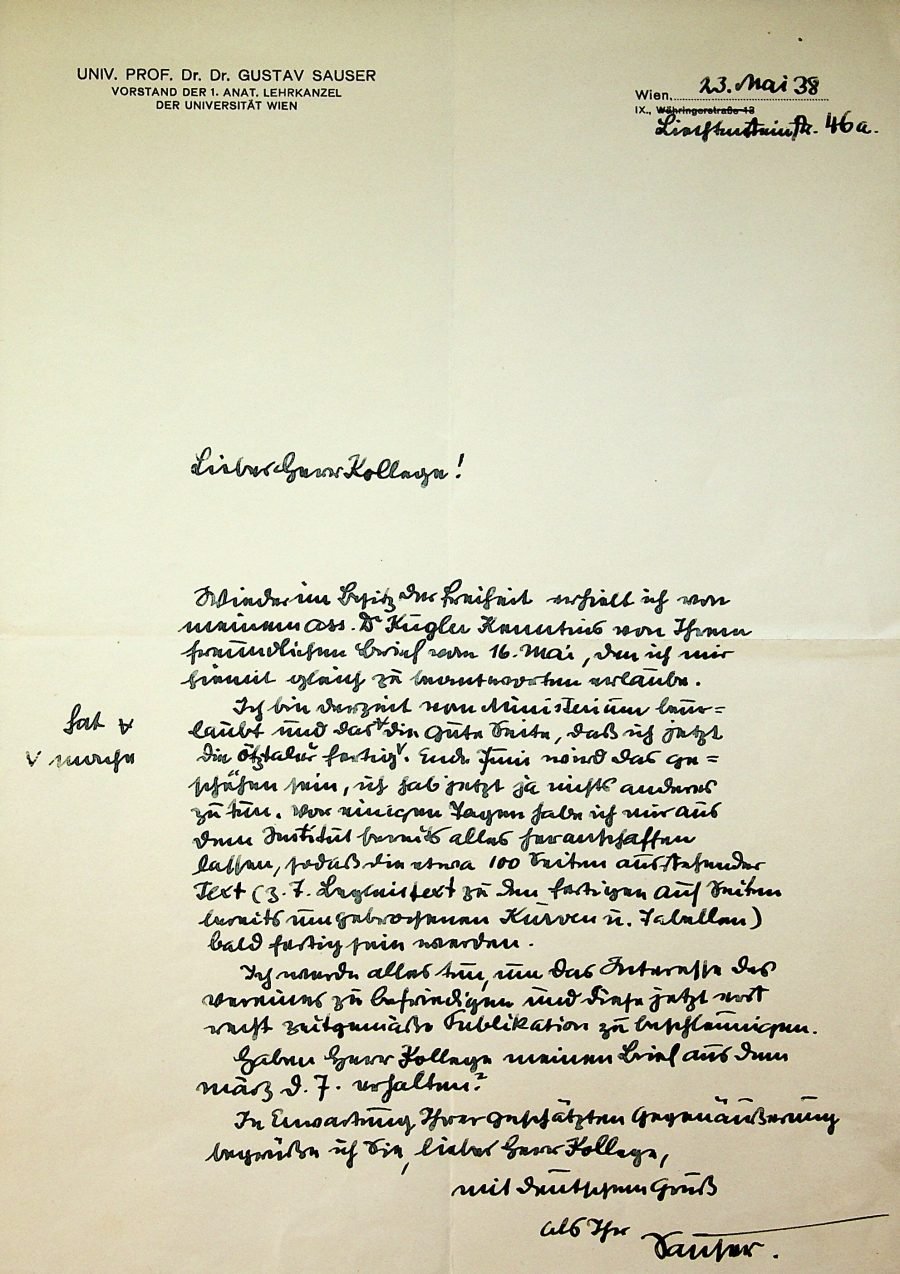 UNIV. PROF. Dr. Dr. GUSTAV SAUSER
VORSTAND DER 1. ANAT. LEHRKANZEL
DER UNIVERSITÄT WIEN
Wien, 23. Mai 38
IX., Währingerstraße 13
Liechtensteinstr. 46a.
Lieber Herr Kollege!
Wieder im Besitz der Freiheit erhielt ich von
meinem Ass. Dr Kugler Kenntnis von Ihrem
freundlichen Brief vom 16. Mai, den ich mir
hiemit gleich zu beantworten erlaube.
Ich bin derzeit vom Ministerium beur=
hat v
laubt und das v die gute Seite, daß ich jetzt
v mache
die Ötztaler fertig v. Ende Juni wird das ge=
schehen sein, ich hab jetzt ja nichts anderes
zu tun. Vor einigen Tagen habe ich mir aus
dem Institut bereits alles heranschaffen
lassen, sodaß die etwa 100 Seiten ausstehender
Text (z. T. Begleittext zu den fertigen auf Seiten
bereits umgebrochenen Kurven u. Tabellen)
bald fertig sein werden.
Ich werde alles tun, um das Interesse des
Vereines zu befriedigen und diese jetzt erst
recht zeitgemäße Publikation zu beschleunigen.
Haben Herr Kollege meinen Brief aus dem
März d. J. erhalten?
In Erwartung Ihrer geschätzten Gegenäußerung
begrüße ich Sie, lieber Herr Kollege,
mit deutschem Gruß
als Ihr
Sauser.